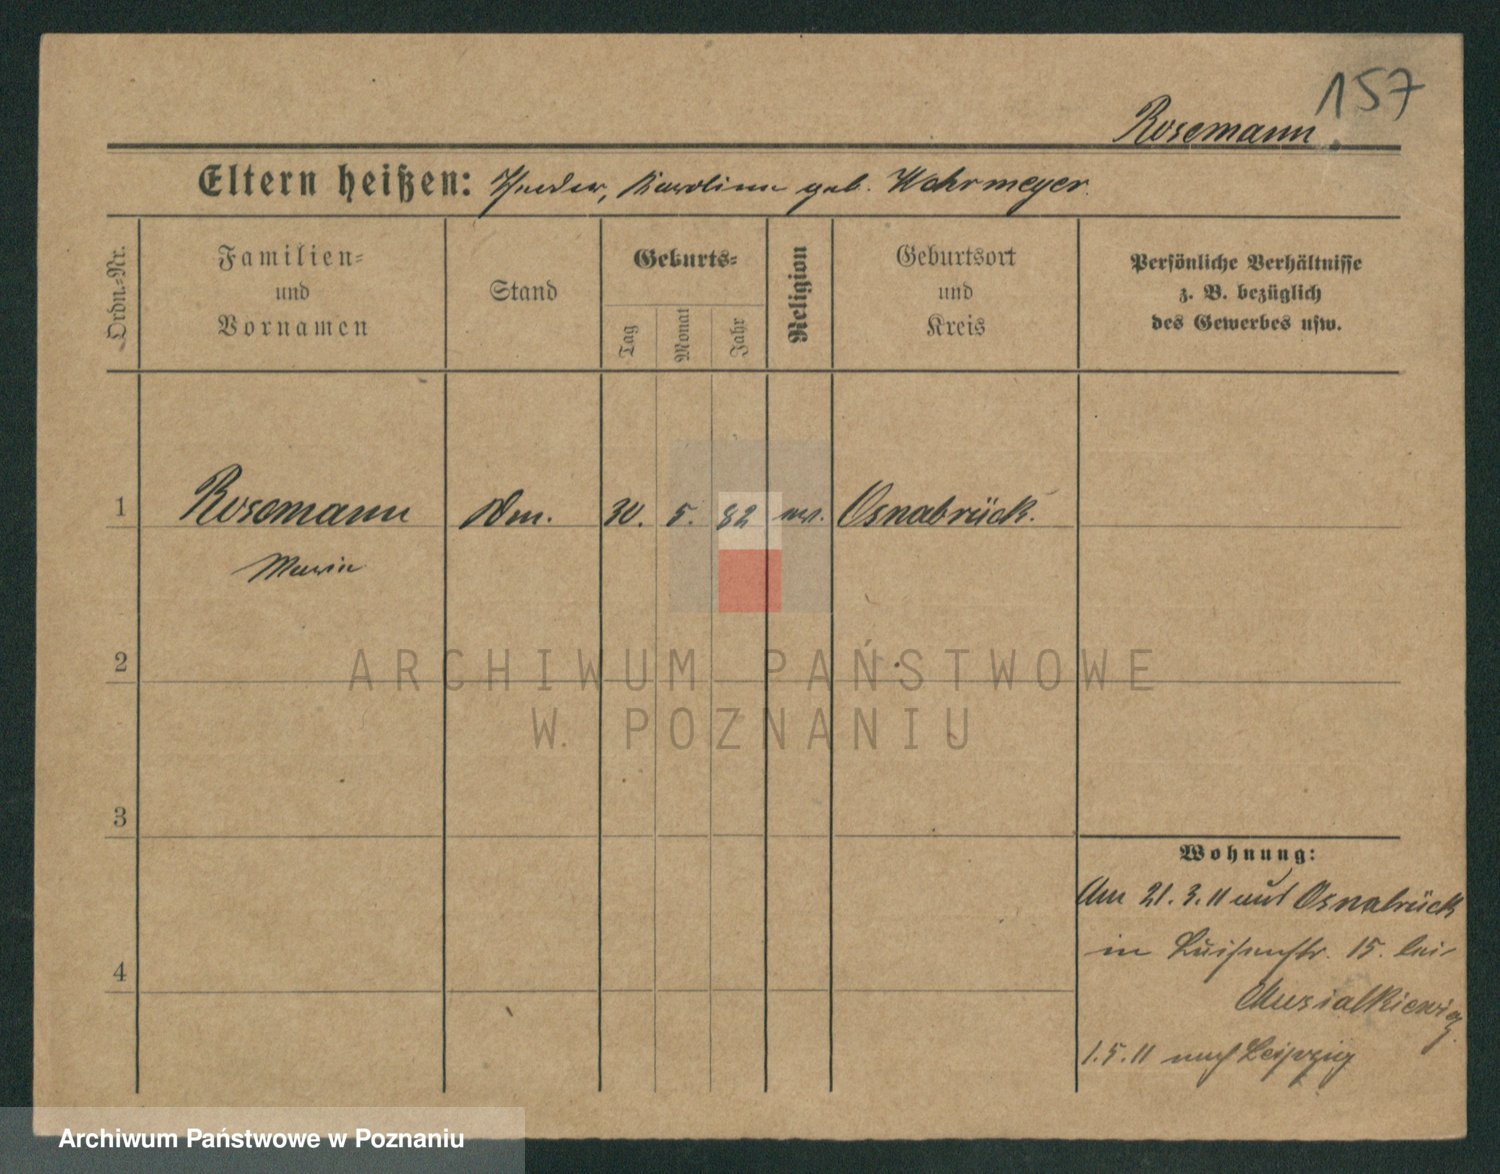 157
Rosemann.
Eltern heißen: Karoline geb. Wehrmeyer.
Ordn.-Nr.
Familien-
und
Vornamen
Stand
Geburts-
Tag
Monat
Jahr
Religion
Geburtsort
und
Kreis
Persönliche Verhältnisse
z. B. bezüglich
des Gewerbes usw.
1 Rosemann 30. 5. 82 Osnabrück.
Marie
2
3
4
Wohnung:
Am 21.3.11 aus Osnabrück
in Luisenstr. 15. bei
Musialkiewicz
1.5.11 nach Leipzig
ARCHIWUM PAŃSTWOWE
W POZNANIU
Archiwum Państwowe w Poznaniu